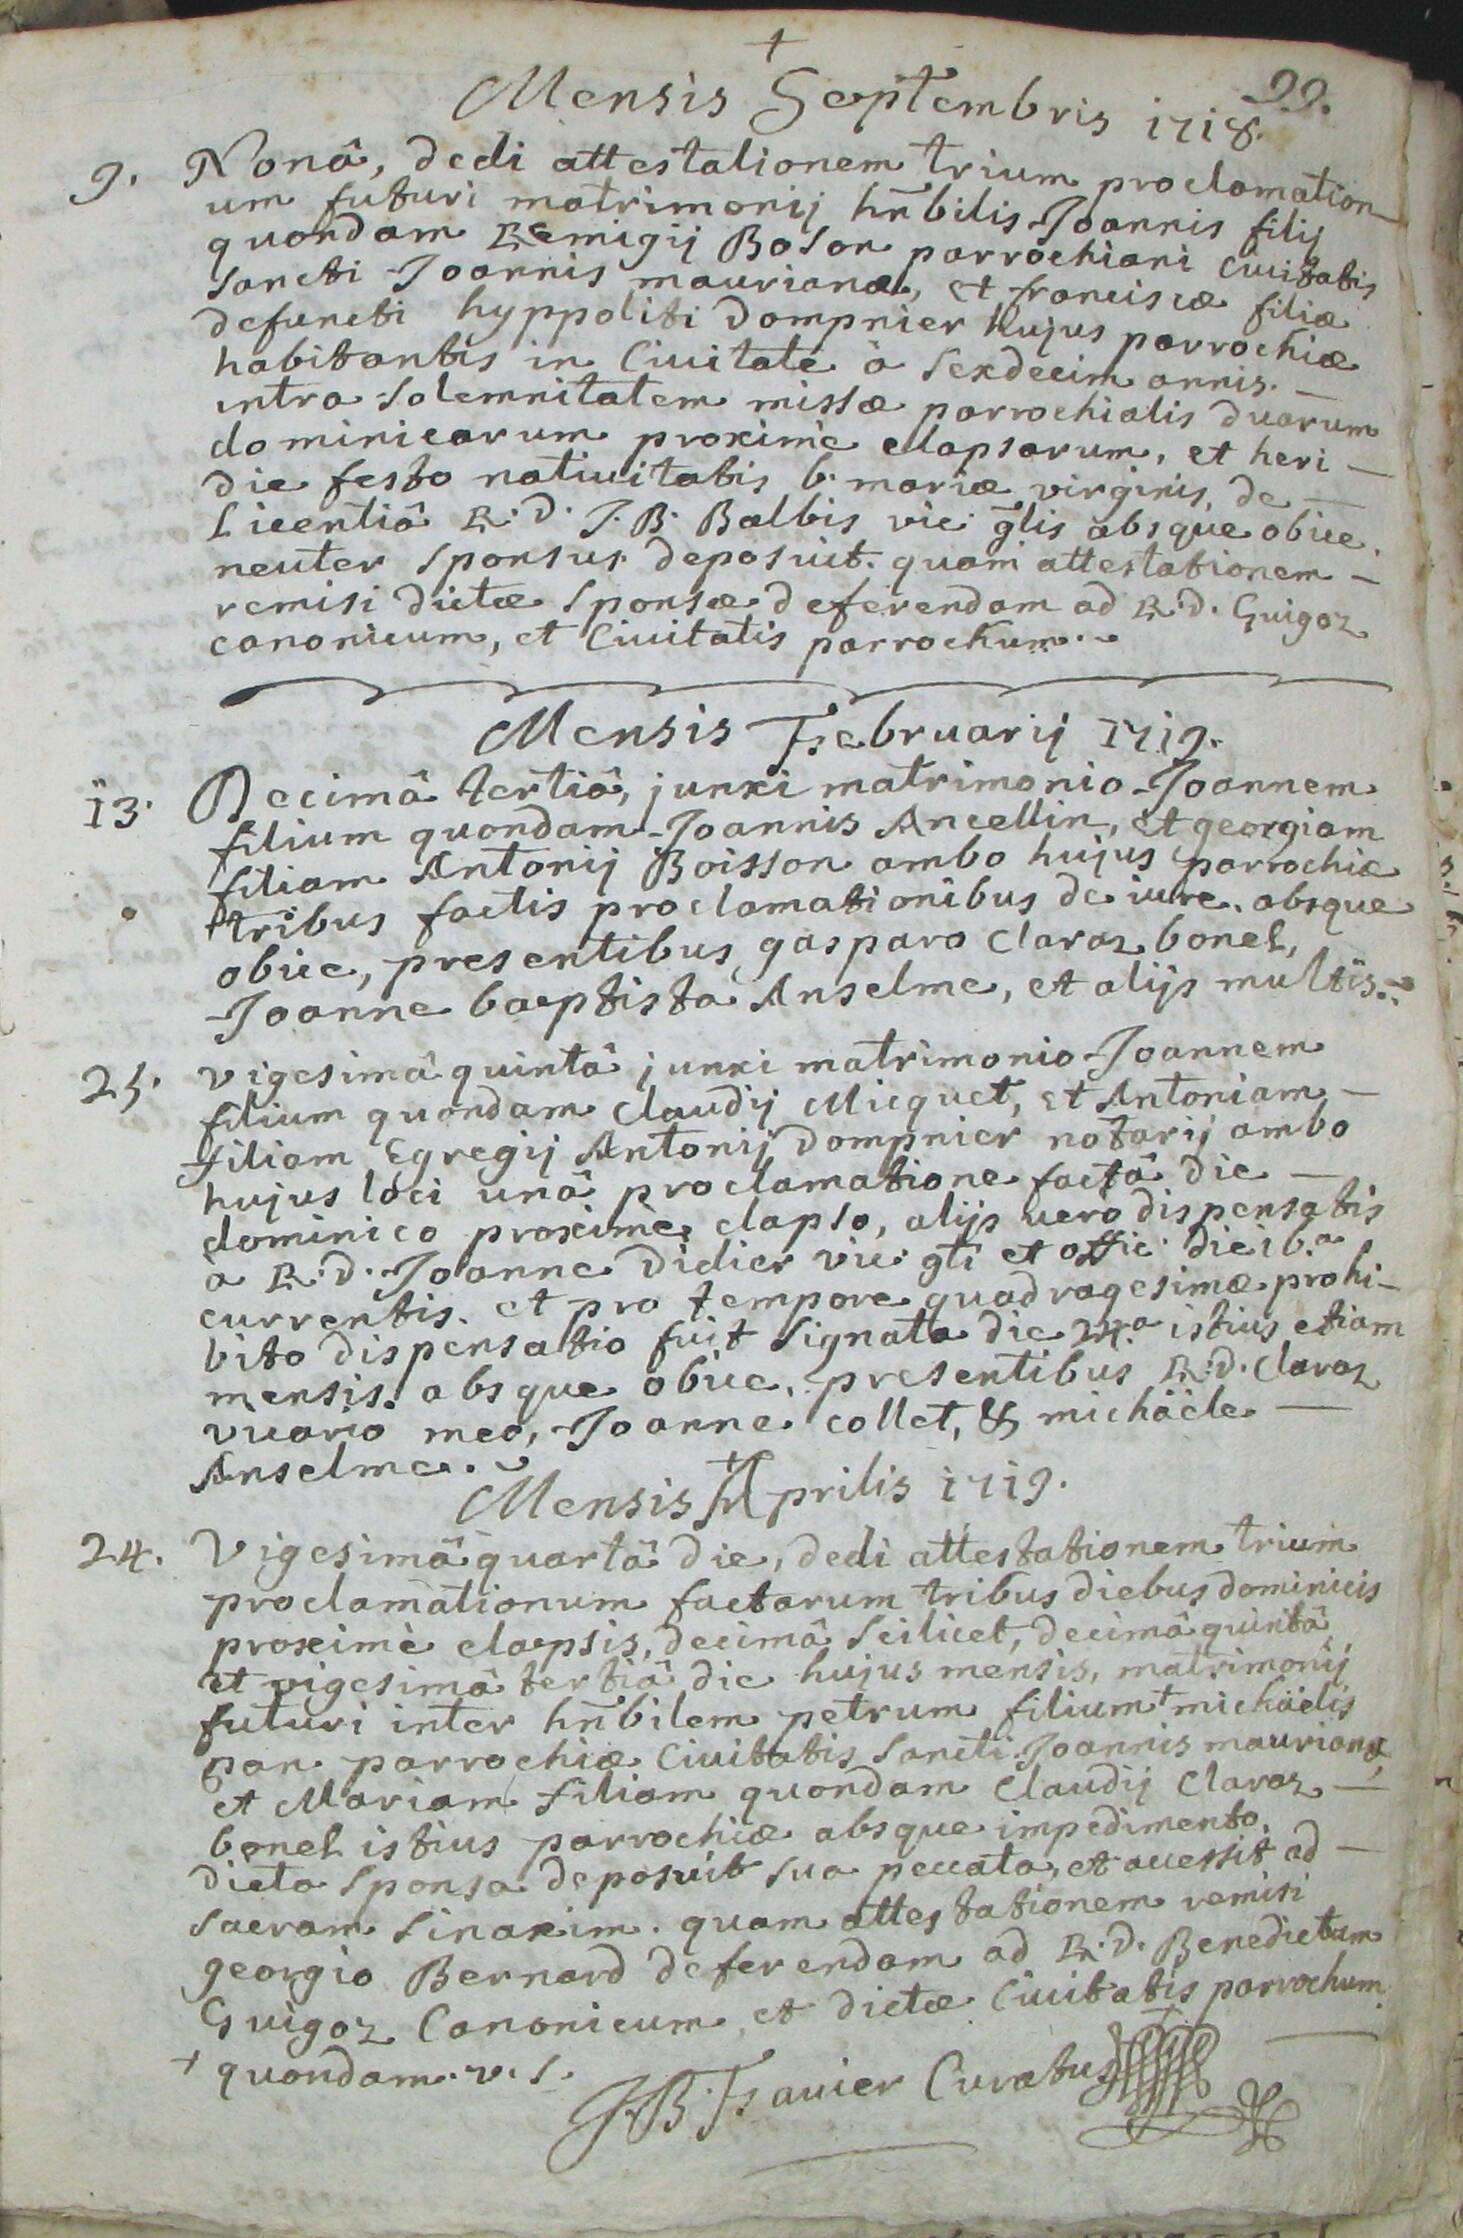 +
99.
Mensis Septembris 1718.
9. Nonâ, dedi attestationem trium proclamation
um futuri matrimonij hn̄bilis Joannis filij
quondam Remigij Boson parrochiani Ciuitatis
sancti Joannis maurianæ, et franciscæ filiæ
defuncti hyppoliti Dompnier hujus parrochiæ
habitantis in Ciuitate à sexdecim annis. —
intra solemnitatem missæ parrochialis duarum
dominicarum proximè elapsarum, et heri —
die festo natiuitatis b. mariæ virginis, de —
licentiâ R. D. J. B. Balbis vic. gl̄is absque obice.
neuter sponsus deposuit. quam attestationem —
remisi dictæ sponsæ deferendam ad R. D. Guigoz
canonicum, et Ciuitatis parrochum.
Mensis Februarij 1719.
13. Decimâ tertiâ, junxi matrimonio Joannem
filium quondam Joannis Ancellin, et georgiam
filiam Antonij Boisson ambo hujus parrochiæ
tribus factis proclamationibus de iure. absque
obice, presentibus gasparo Claraz bonel,
Joanne baptista Anselme, et alijs multis.
25. Vigesimâ quintâ junxi matrimonio Joannem
filium quondam Claudij Micquet, et Antoniam —
filiam Egregij Antonij Dompnier notarij ambo
hujus loci unâ proclamatione factâ die —
dominico proximè elapso, alijs vero dispensatis
à R. D. Joanne Didier vic. gl̄i et offic. die 16.a
currentis. et pro tempore quadragesimæ prohi-
bito dispensatio fuit signata die 24.a istius etiam
mensis. absque obice. presentibus R. D. Claraz
vicario meo, Joanne collet, & michäele —
Anselme.
+
Mensis Aprilis 1719.
24. Vigesimâ quartâ die, dedi attestationem trium
proclamationum factarum tribus diebus dominicis
proximè elapsis, decimâ scilicet, decimâ quintâ
et vigesimâ tertiâ die hujus mensis, matrimonij
futuri inter hn̄bilem petrum filium + michäelis
pan parrochiæ Ciuitatis sancti Joannis maurianæ,
et Mariam filiam quondam Claudij Claraz —
bonel istius parrochiæ absque impedimento.
dicta sponsa deposuit sua peccata, et accessit ad —
sacram sinaxim. quam attestationem remisi
georgio Bernard deferendam ad R. D. Benedictum
Guigoz Canonicum, et dictæ Ciuitatis parrochum.
+ quondam. v. s.
J. B. Favier Curatus